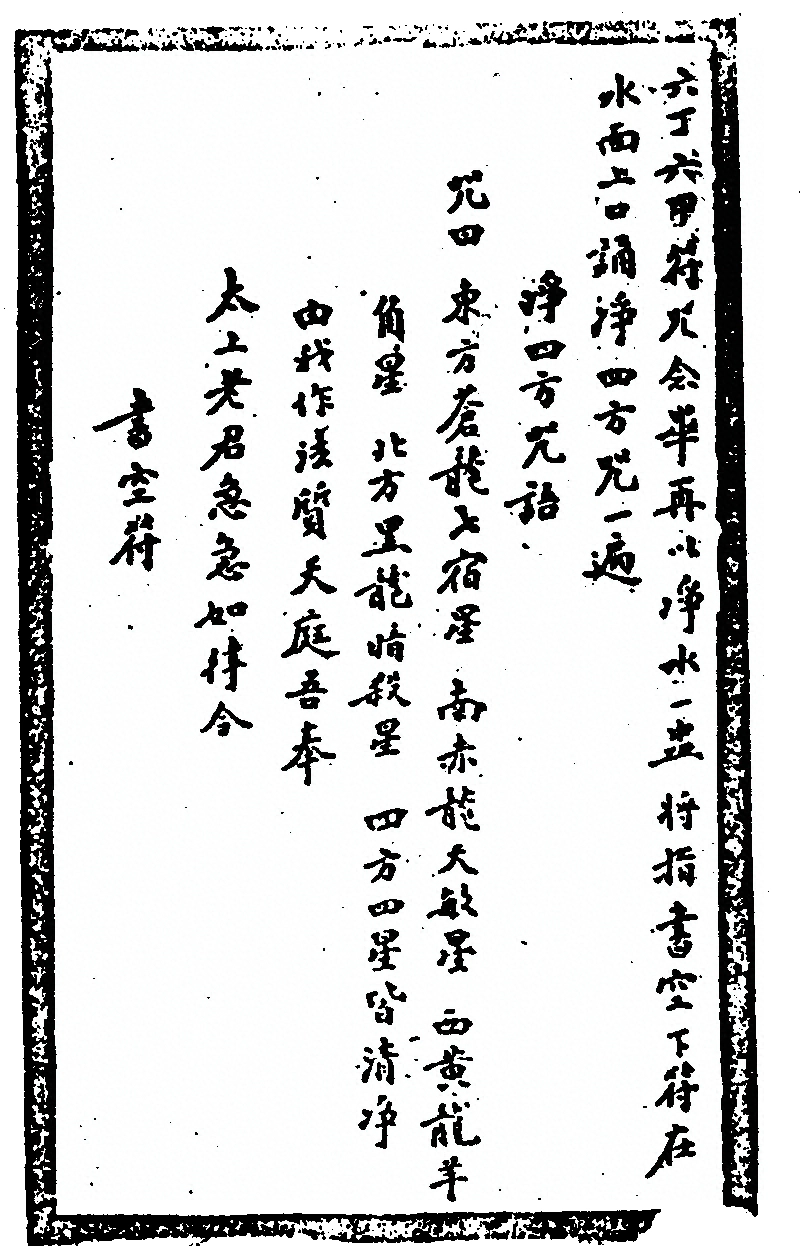 六丁六甲符咒念畢再以淨水一盅將指書空下符在
水面上口誦淨四方咒一遍
淨四方咒語
咒曰 東方蒼龍七宿星 南赤龍天敏星 西黃龍羊
角星 北方黑龍暗殺星 四方四星皆清净
由我作法質天庭吾奉
太上老君急急如律令
書空符